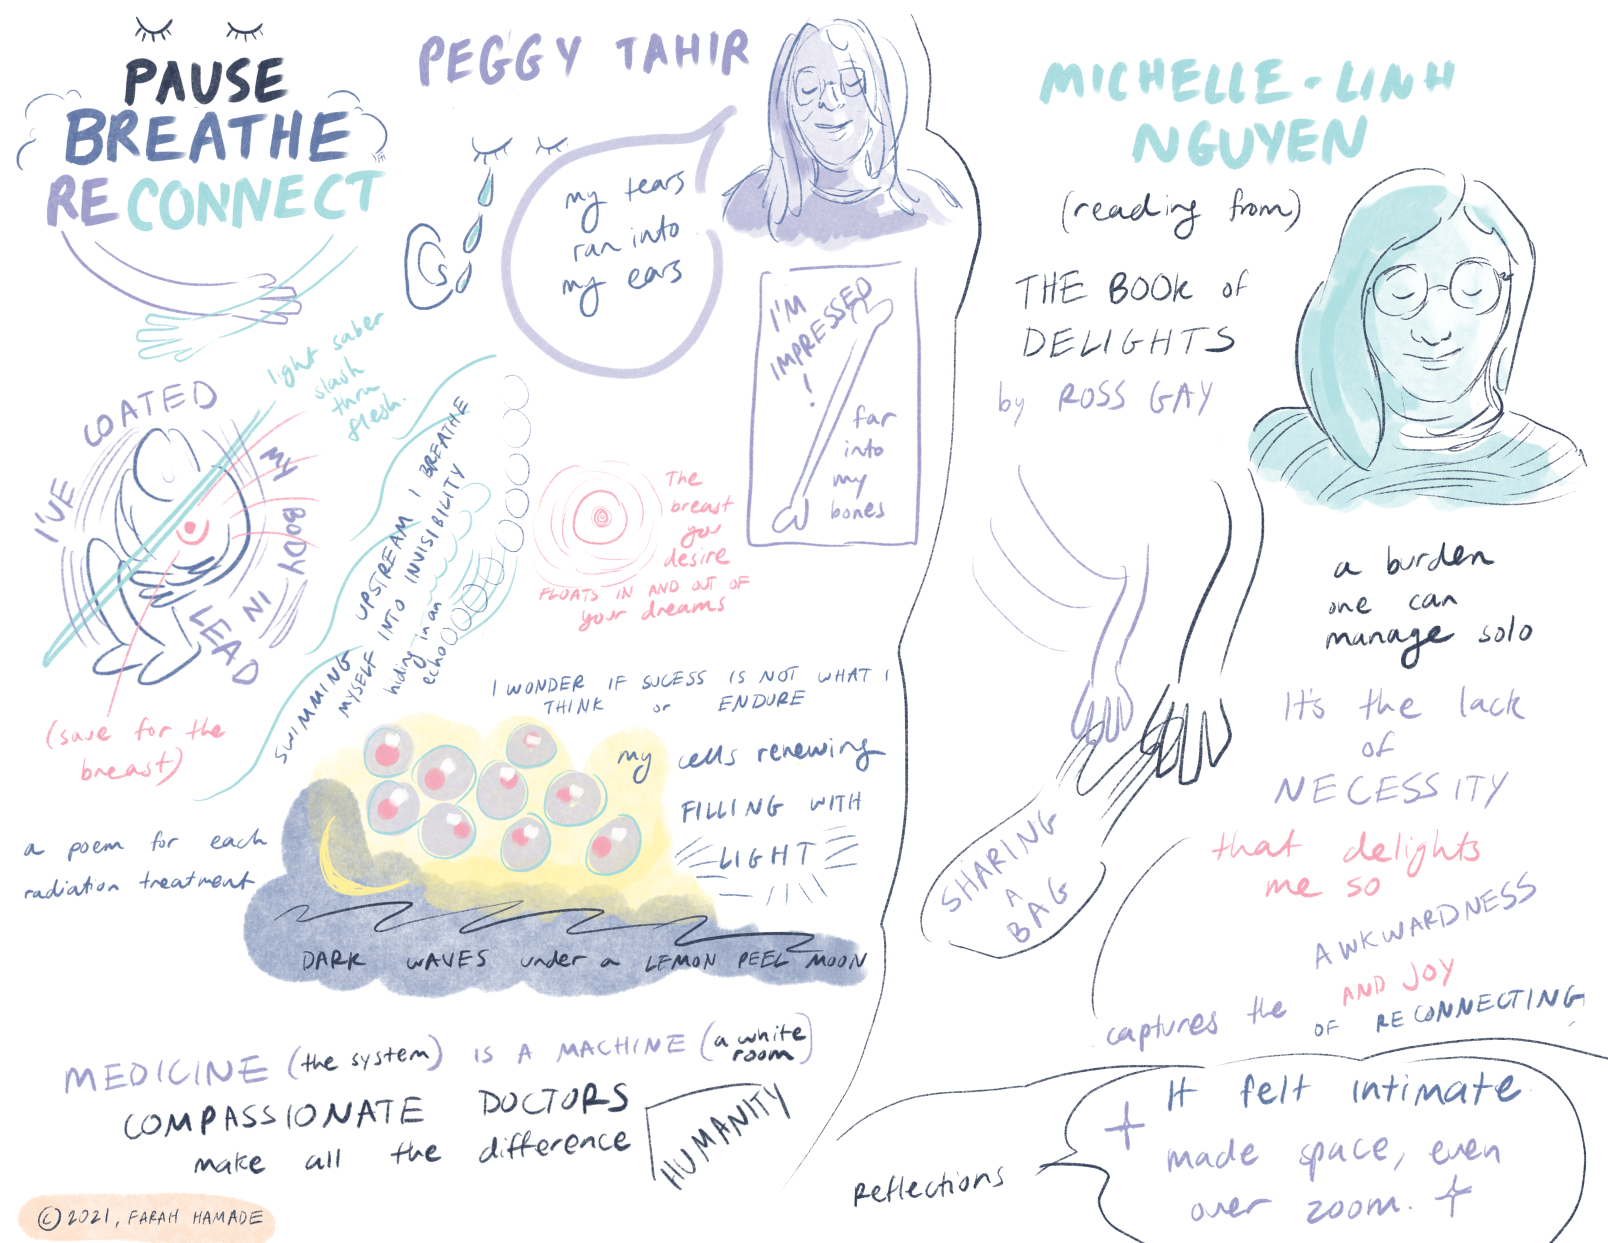 PAUSE
BREATHE
RECONNECT
PEGGY TAHIR
my tears
ran into
my ears
I'M
IMPRESSED
!
far
into
my
bones
light saber
slash
thru
flesh.
I'VE
COATED
MY
BODY
IN
LEAD
(save for the
breast)
SWIMMING UPSTREAM I BREATHE
MYSELF INTO INVISIBILITY
hiding in an
echo
The
breast
you
desire
FLOATS IN AND OUT OF
your dreams
I WONDER IF SUCESS IS NOT WHAT I
THINK or ENDURE
my cells renewing
FILLING WITH
LIGHT
a poem for each
radiation treatment
DARK WAVES under a LEMON PEEL MOON
MEDICINE (the system) IS A MACHINE (a white
room)
COMPASSIONATE DOCTORS
make all the difference
HUMANITY
© 2021, FARAH HAMADE
MICHELLE-LINH
NGUYEN
(reading from)
THE BOOK of
DELIGHTS
by ROSS GAY
a burden
one can
manage solo
It's the lack
of
NECESSITY
that delights
me so
SHARING
A
BAG
captures the
AWKWARDNESS
AND JOY
OF RECONNECTING
Reflections
It felt intimate
made space, even
over zoom.